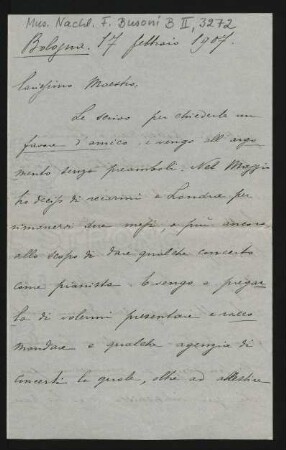 Mus. Nachl. F. Busoni B II, 3272
Bologna. 17 febbraio 1907.
Carissimo Maestro,
Le scrivo per chiederle un
favore d'amico e vengo all'argo
mento senza preamboli. Nel Maggio
ho deciso di recarmi a Londra per
rimanervi due mesi, e più ancora
allo scopo di dare qualche concerto
come pianista. E vengo a pregar
la di volermi presentare e racco
mandare a qualche agenzia di
Concerti la quale, oltre ad allestire